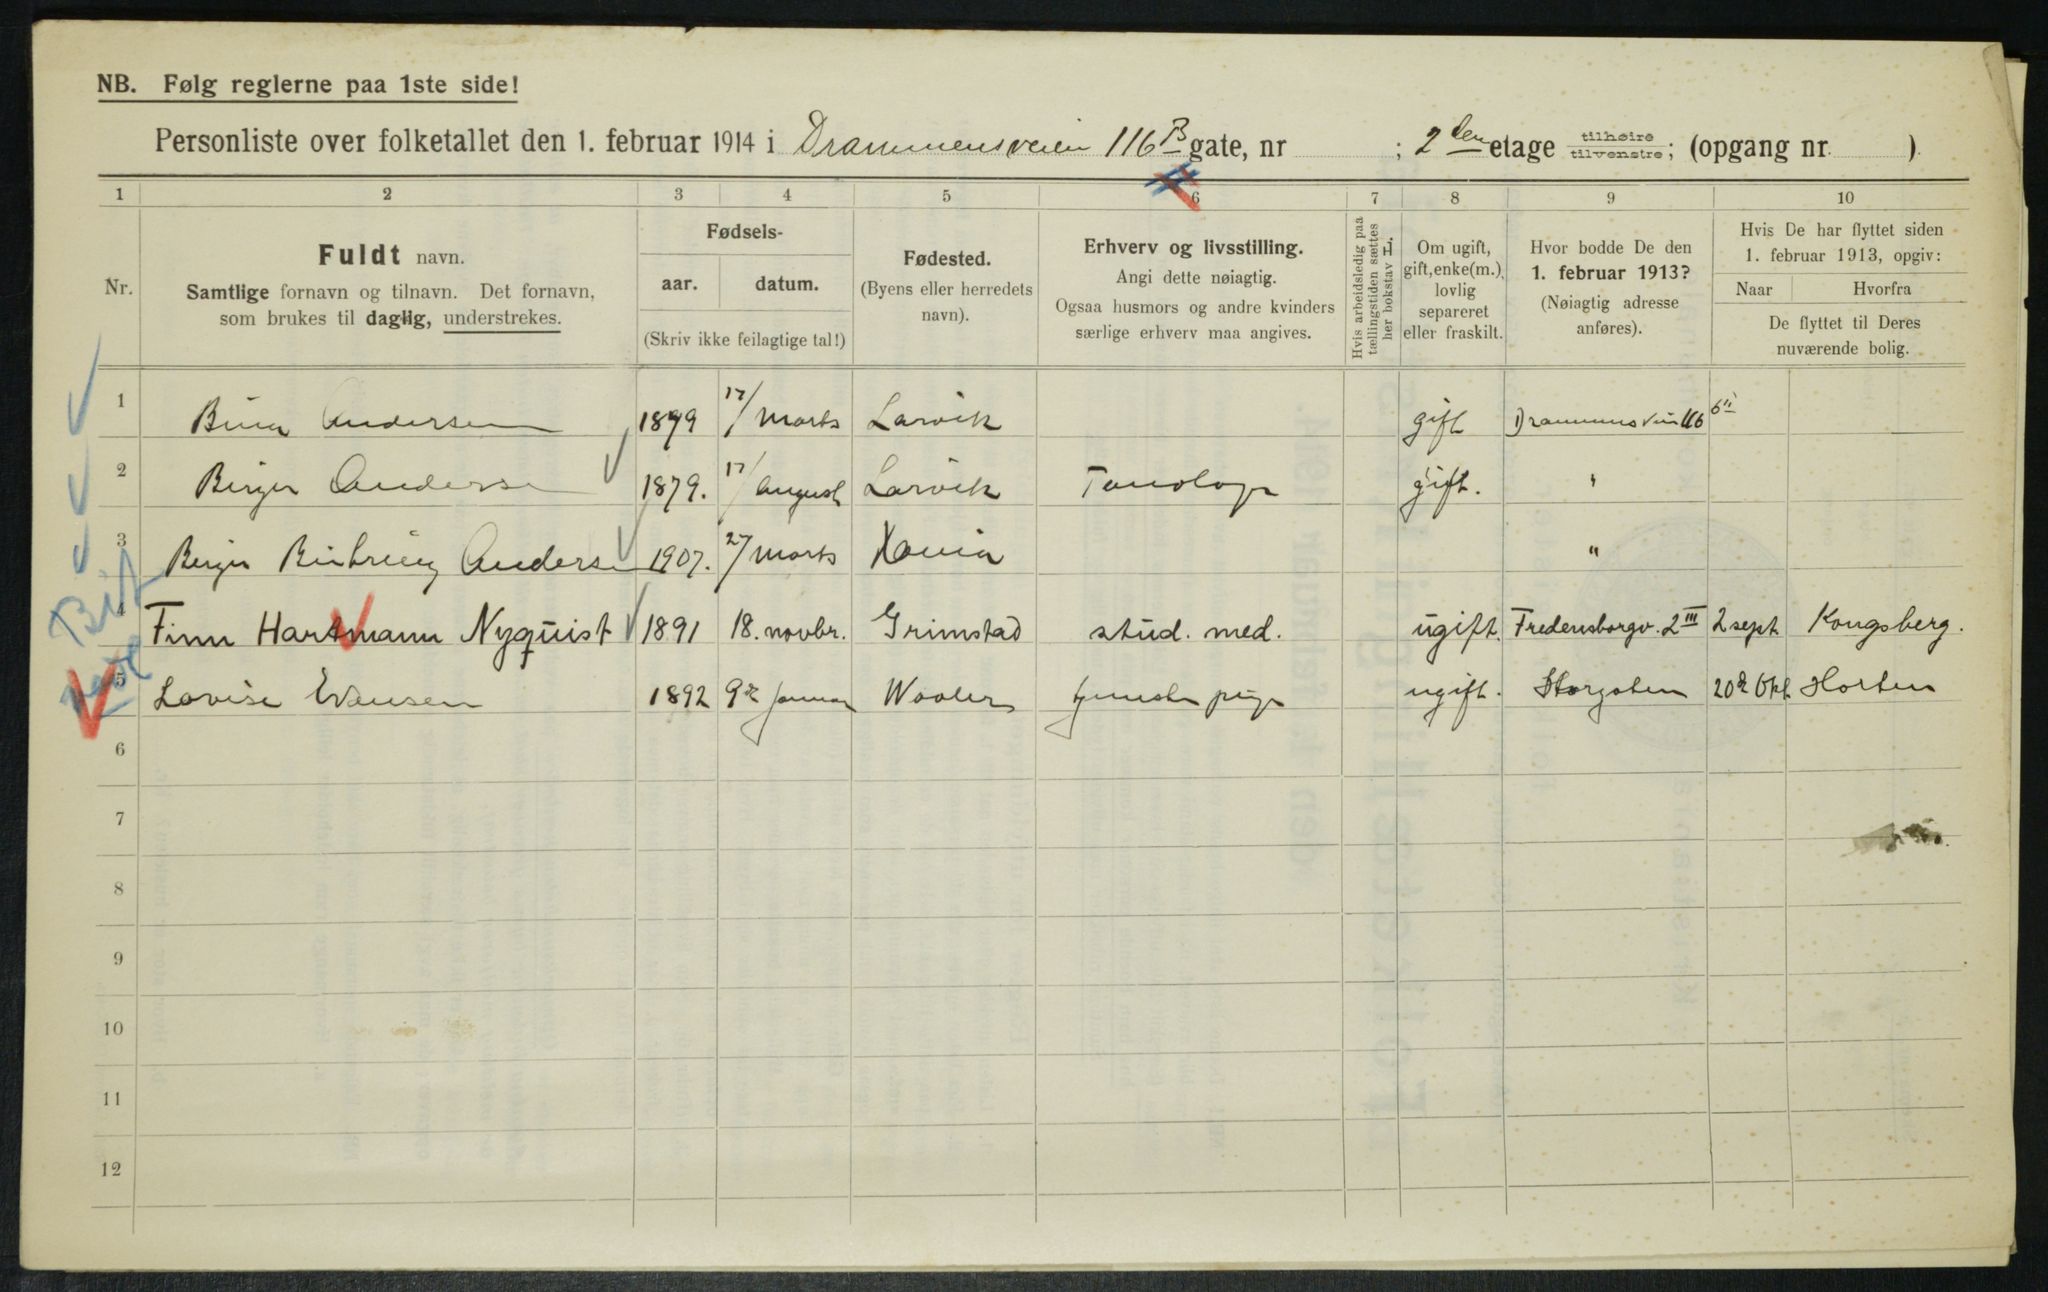 NB. Følg reglerne paa 1ste side!
Personliste over folketallet den 1. februar 1914 i Drammensveien 116 B gate, nr ; 2den etage tilhøire tilvenstre; (opgang nr. ).
1 2 3 4 5 6 7 8 9 10
Nr.
Fuldt navn.
Samtlige fornavn og tilnavn. Det fornavn,
som brukes til daglig, understrekes.
Fødsels-
aar. datum.
(Skriv ikke feilagtige tal!)
Fødested.
(Byens eller herredets
navn).
Erhverv og livsstilling.
Angi dette nøiagtig.
Ogsaa husmors og andre kvinders
særlige erhverv maa angives.
Hvis arbeidsledig paa
tællingstiden sættes
her bokstav L.
Om ugift,
gift, enke(m.),
lovlig
separeret
eller fraskilt.
Hvor bodde De den
1. februar 1913?
(Nøiagtig adresse
anføres).
Hvis De har flyttet siden
1. februar 1913, opgiv:
Naar Hvorfra
De flyttet til Deres
nuværende bolig.
1 Andersen 1879 17/ Marts Larvik gift 116
2 Birger Andersen 1879. 17/ august Larvik gift. "
3 Birger Andersen 1907. 27/ Marts Xania "
4 Finn Hartmann Nyquist 1891 18. novbr. Grimstad stud. med. ugift. Fredensborgv. 2 III 2 sept. Kongsberg.
5 Lovise Evensen 1892 9de Januar Waaler pige ugift. Storgaten 20de Okt Horten
6
7
8
9
10
11
12